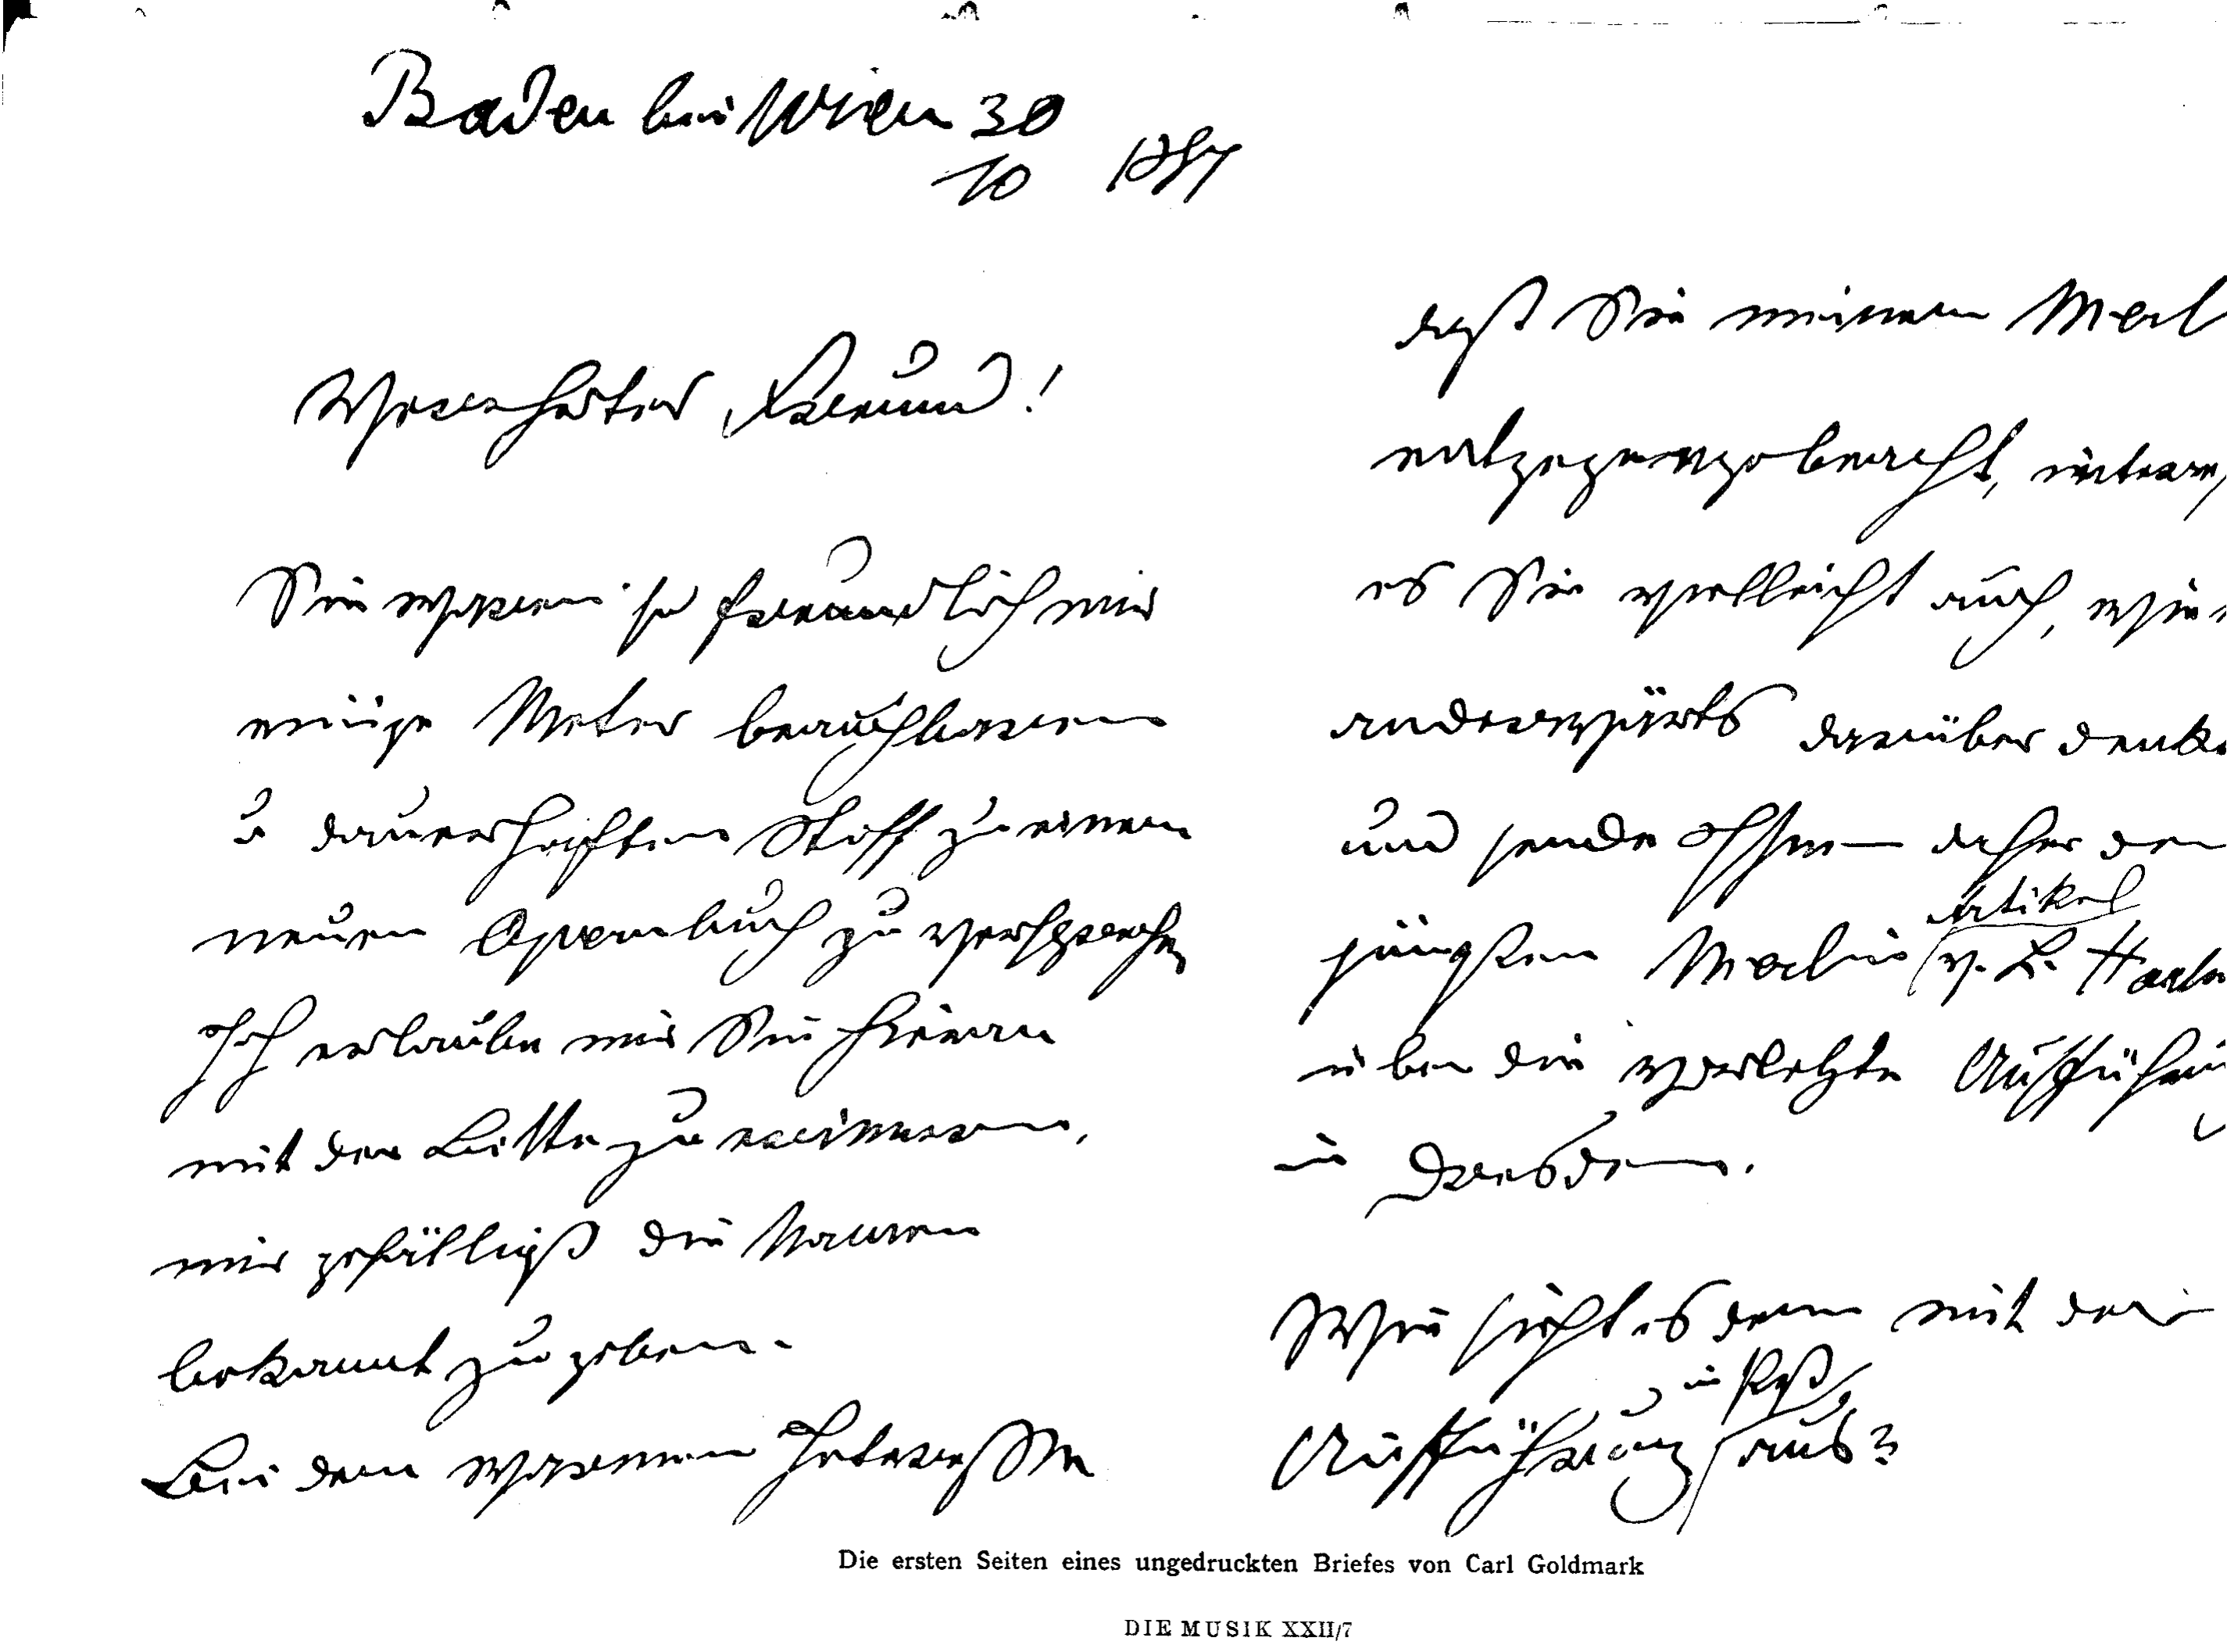 Baden bei Wien 30
10 1887
Verehrter Freund!
Sie waren so freundlich mir
einige Meter brauchbaren
u dauerhaften Stoff zu einem
neuen Opernbuch zu versprechen
Ich erlaube mir Sie hieran
mit der Bitte zu erinnern,
mir gefälligst die Namen
bekannt zu geben.
Bei dem warmen Interesse
daß Sie meinem Merl
entgegengebracht,
es Sie vielleicht auch, wie
anderswärts darüber denk
und sende Ihnen daher den
Artikel
jüngsten Merlin v. L. Hart
über die vorletzte Aufführu
in Dresden.
Wie sieht es denn mit der
in
Aufführung aus?
Die ersten Seiten eines ungedruckten Briefes von Carl Goldmark
DIE MUSIK XXII/7